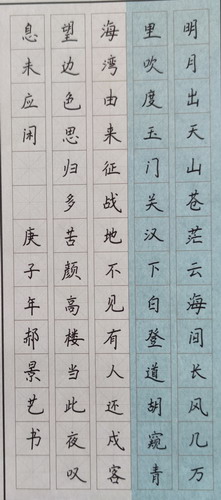 明月出天山苍茫云海间长风几万
里吹度玉门关汉下白登道胡窥青
海湾由来征战地不见有人还戍客
望边色思归多苦颜高楼当此夜叹
息未应闲 庚子年郝景艺书